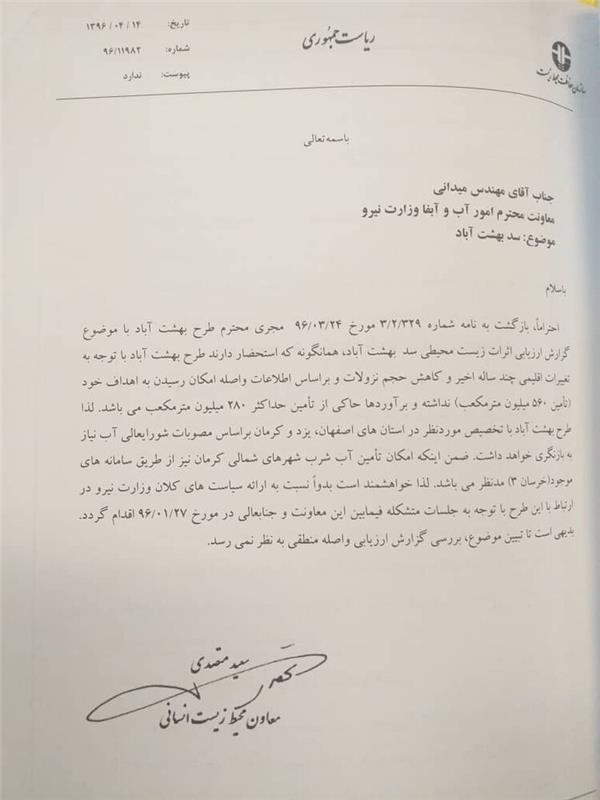 ریاست جمهوری
سازمان حفاظت محیط زیست
تاریخ: ۱۳۹۶/۰۴/۱۴
شماره: ۹۶/۱۱۹۸۲
پیوست: ندارد
باسمه تعالی
جناب آقای مهندس میدانی
معاونت محترم امور آب و آبفا وزارت نیرو
موضوع: سد بهشت آباد
باسلام
احتراماً، بازگشت به نامه شماره ۳/۲/۳۲۹ مورخ ۹۶/۰۳/۲۴ مجری محترم طرح بهشت آباد با موضوع
گزارش ارزیابی اثرات زیست محیطی سد بهشت آباد، همانگونه که استحضار دارند طرح بهشت آباد با توجه به
تغیرات اقلیمی چند ساله اخیر و کاهش حجم نزولات و براساس اطلاعات واصله امکان رسیدن به اهداف خود
(تأمین ۵۶۰ میلیون مترمکعب) نداشته و برآوردها حاکی از تأمین حداکثر ۲۸۰ میلیون مترمکعب می باشد. لذا
طرح بهشت آباد با تخصیص موردنظر در استان های اصفهان، یزد و کرمان براساس مصوبات شورایعالی آب نیاز
به بازنگری خواهد داشت. ضمن اینکه امکان تأمین آب شرب شهرهای شمالی کرمان نیز از طریق سامانه های
موجود(خرسان ۳) مدنظر می باشد. لذا خواهشمند است بدواً نسبت به ارائه سیاست های کلان وزارت نیرو در
ارتباط با این طرح با توجه به جلسات متشکله فیمابین این معاونت و جنابعالی در مورخ ۹۶/۰۱/۲۷ اقدام گردد.
بدیهی است تا تبیین موضوع، بررسی گزارش ارزیابی واصله منطقی به نظر نمی رسد.
سعید متصدی
معاون محیط زیست انسانی